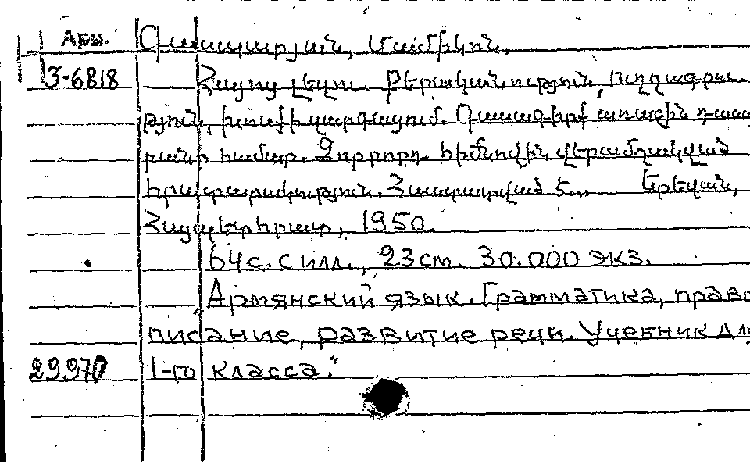 Арм. Գասպարյան, Մամիկոն.
3-6818 Հայոց լեզու. Քերականություն, ուղղագրու-
թյուն, խոսքի զարգացում. Դասագիրք առաջին դասա-
րանի համար. Չորրորդ հիմնովին վերամշակված
հրատարակություն. Հաստատված է... Երևան,
Հայպետհրատ, 1950.
64 с. с илл., 23 см. 30.000 экз.
„Армянский язык. Грамматика, право-
писание, развитие речи. Учебник для
29970 1-го класса."